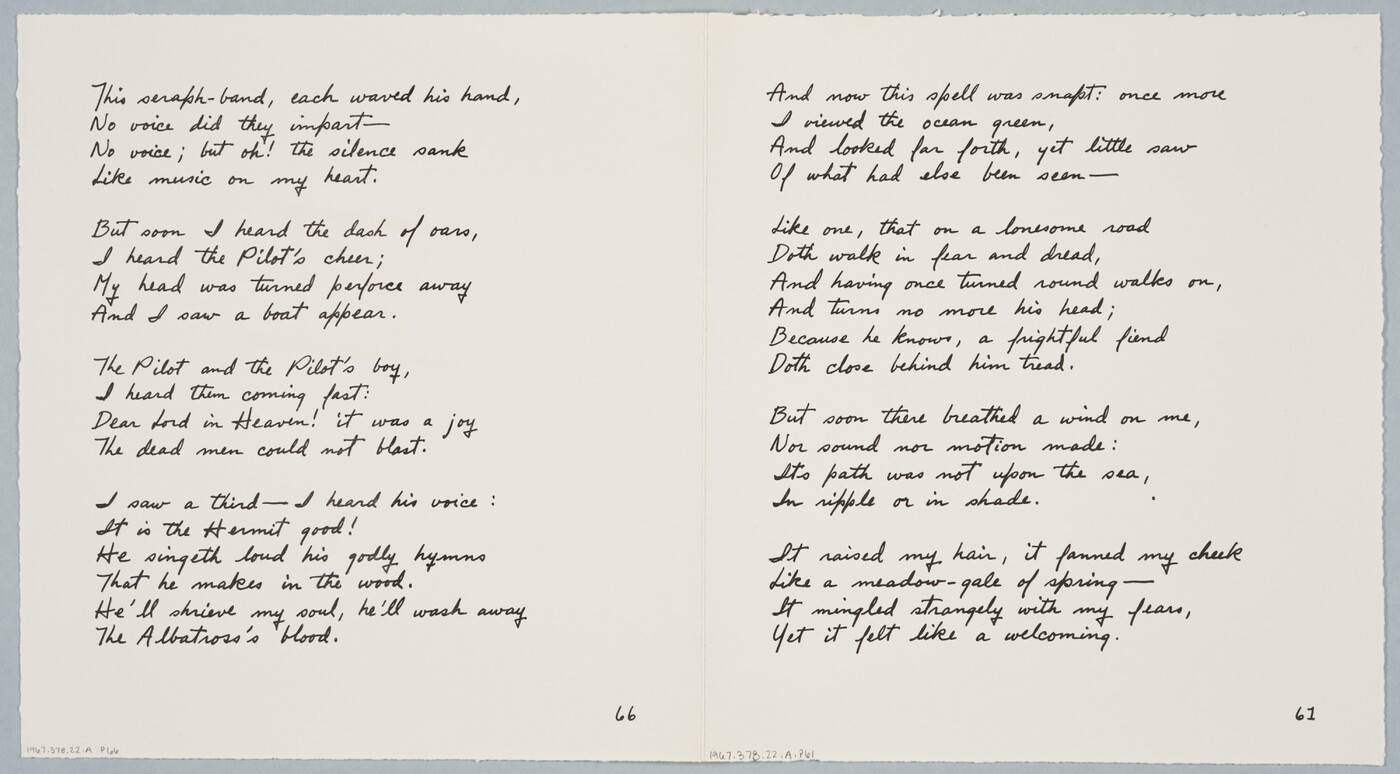 This seraph-band, each waved his hand,
No voice did they impart—
No voice; but oh! the silence sank
Like music on my heart.

But soon I heard the dash of oars,
I heard the Pilot's cheer;
My head was turned perforce away
And I saw a boat appear.

The Pilot and the Pilot's boy,
I heard them coming fast:
Dear Lord in Heaven! it was a joy
The dead men could not blast.

I saw a third—I heard his voice:
It is the Hermit good!
He singeth loud his godly hymns
That he makes in the wood.
He'll shrieve my soul, he'll wash away
The Albatross's blood.

66
1967.378.22.A.P66

And now this spell was snapt: once more
I viewed the ocean green,
And looked far forth, yet little saw
Of what had else been seen—

Like one, that on a lonesome road
Doth walk in fear and dread,
And having once turned round walks on,
And turns no more his head;
Because he knows, a frightful fiend
Doth close behind him tread.

But soon there breathed a wind on me,
Nor sound nor motion made:
Its path was not upon the sea,
In ripple or in shade.

It raised my hair, it fanned my cheek
Like a meadow-gale of spring—
It mingled strangely with my fears,
Yet it felt like a welcoming.

61
1967.378.22.A.P61